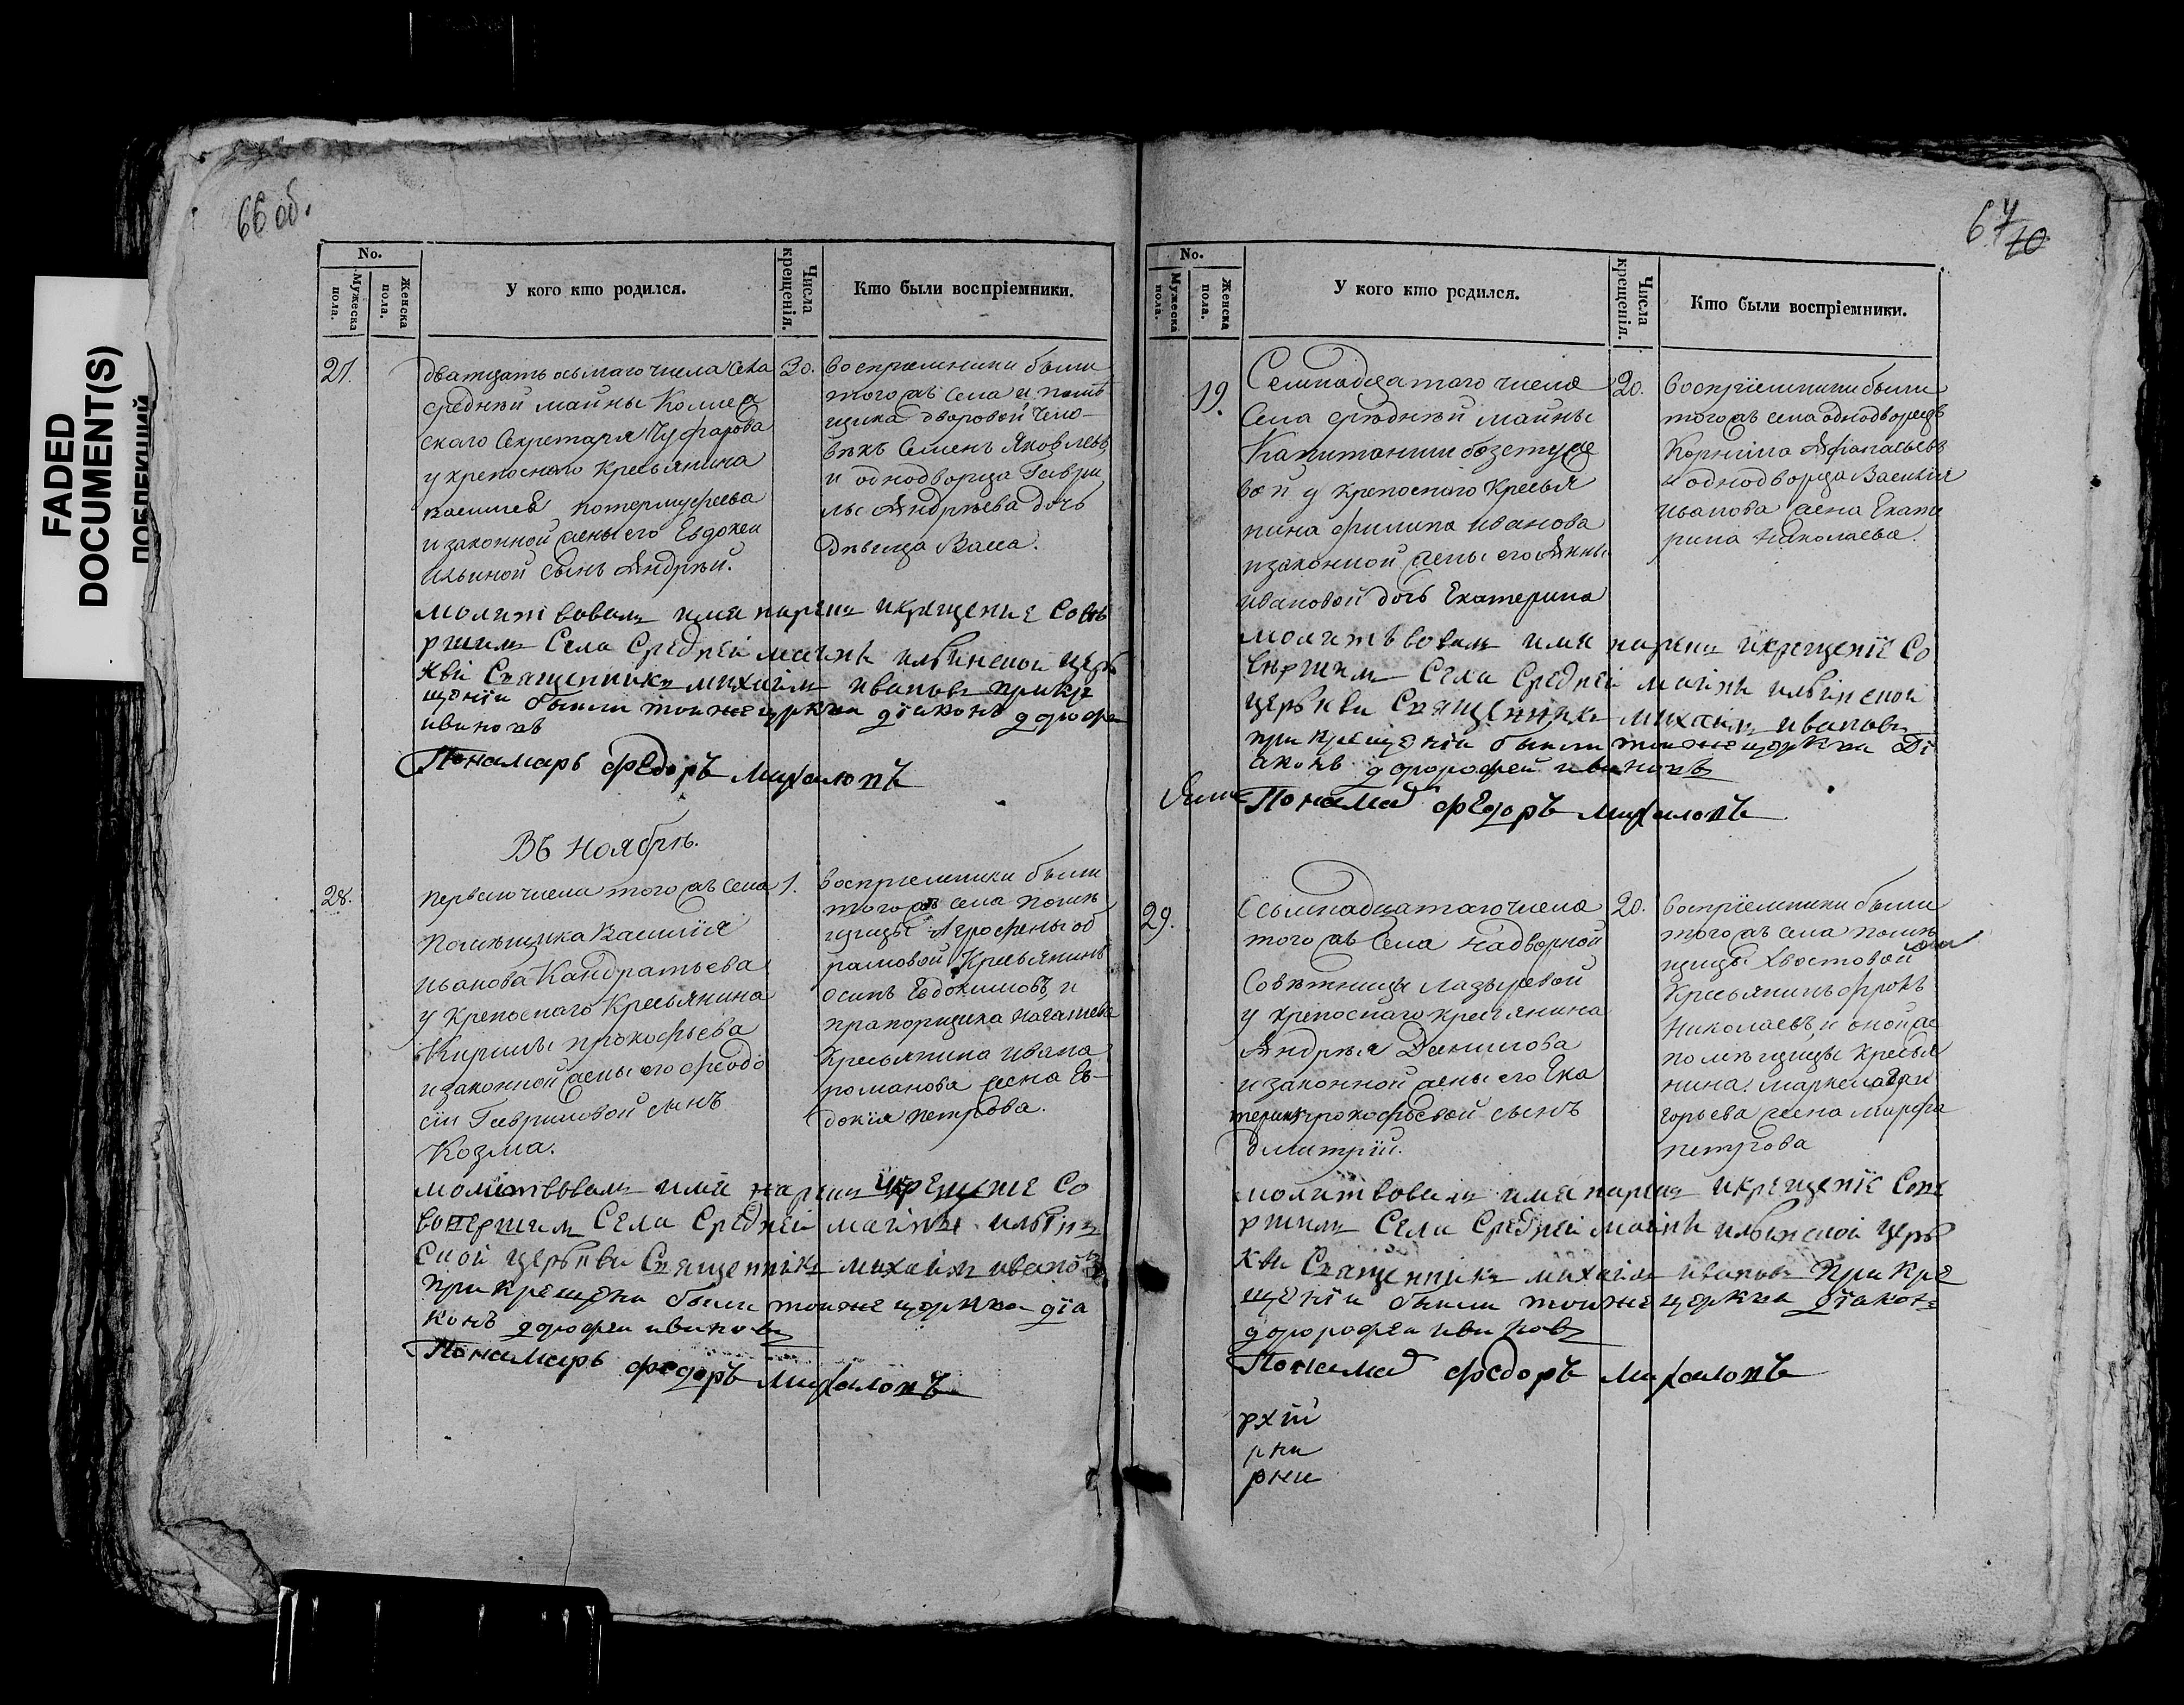 66 об.
No.
Мужеска пола.
Женска пола.
У кого кто родился.
Числа крещенія.
Кто были воспріемники.
27.
дватцать осьмаго числа села
средней майны Коллеж
скаго Секретаря Чуфарова
у крепоснаго Кресьянина
и законной жены его Евдокеи
Ильиной сынъ Андрѣй.
30.
Воспріемники были
того жъ села
щика дворовой чело
вѣкъ Семенъ Яковлевъ,
и однодворца Гаври
лы Андрѣева дочь
дѣвица Васса.
молитвовалъ имя нарекъ икрещение Сове
ршилъ Села Средней маины ильинской церь
кви Священникъ михаилъ ивановъ прикре
щении были тоиже церкви дїаконъ дорофеи
ивановъ
Понамарь Федоръ Михаиловъ
Въ Ноябрѣ.
28.
Перваго числа того жъ села
Помѣщика Василия
Иванова Кандратьева
у Крепоснаго Кресьянина
Кирилы прокофьева
и законной жены его феодо
сїи Гавриловой сынъ
Козма.
1.
Воспріемники были
того жъ села помѣ
щицы Агрофены об
рамовой Кресьянинъ
осипъ Евдокимовъ, и
прапорщика
Кресьянина Ивана
романова жена Ев-
докїя петрова.
молитвовалъ имя нарекъ икрещение Со
вершилъ Села Средней маины ильин
ской церькви Священникъ михаилъ ивановъ
при крещени были тоиже церкви дїа
конъ дорофеи ивановъ
Понамарь федоръ Михаиловъ
67
70
No.
Мужеска пола.
Женска пола.
У кого кто родился.
Числа крещенія.
Кто были воспріемники.
19.
Семнадцатого числа
Села средней майны
Капитанши
вой у крепоснаго Кресья
нина филипа иванова
изаконной жены его Анны
ивановой дочь Екатерина
20.
воспріемники были
того жъ села однодворецъ
Корнила Афанасьевъ
и однодворца Василия
иванова жена Екате
рина Николаева.
молитъвовалъ имя нарекъ икрещенїе Со
вершилъ Села Средней маины ильинской
церькви Священникъ михаилъ ивановъ
при крещении были тоиже церкви Дї
аконъ дорофей ивановъ
Понама федоръ михаиловъ
29.
Осьмнадцатаго числа
того жъ Села Надворной
Совѣтницы Лазыревой
у крепоснаго кресьянина
Андрѣя Данилова
и законной жены его Ека
терины прокофьевой сынъ
дмитрїй.
20.
воспріемники были
того жъ села помѣ
щицы хвостовой
Кресьянинъ фролъ
Николаевъ, и оной же
помѣщицы кресья
нина
горьева жена марфа
петрова
молитвовалъ имя нарекъ икрещенїе Сове
ршилъ Села Средней маины ильинской церь
кви Священникъ михаилъ ивановъ при кре
щенїи были тоиже церкви дїаконъ
дорофеи ивановъ
Понама федоръ михаиловъ
рхїй
рни
рни
FADED
DOCUMENT(S)